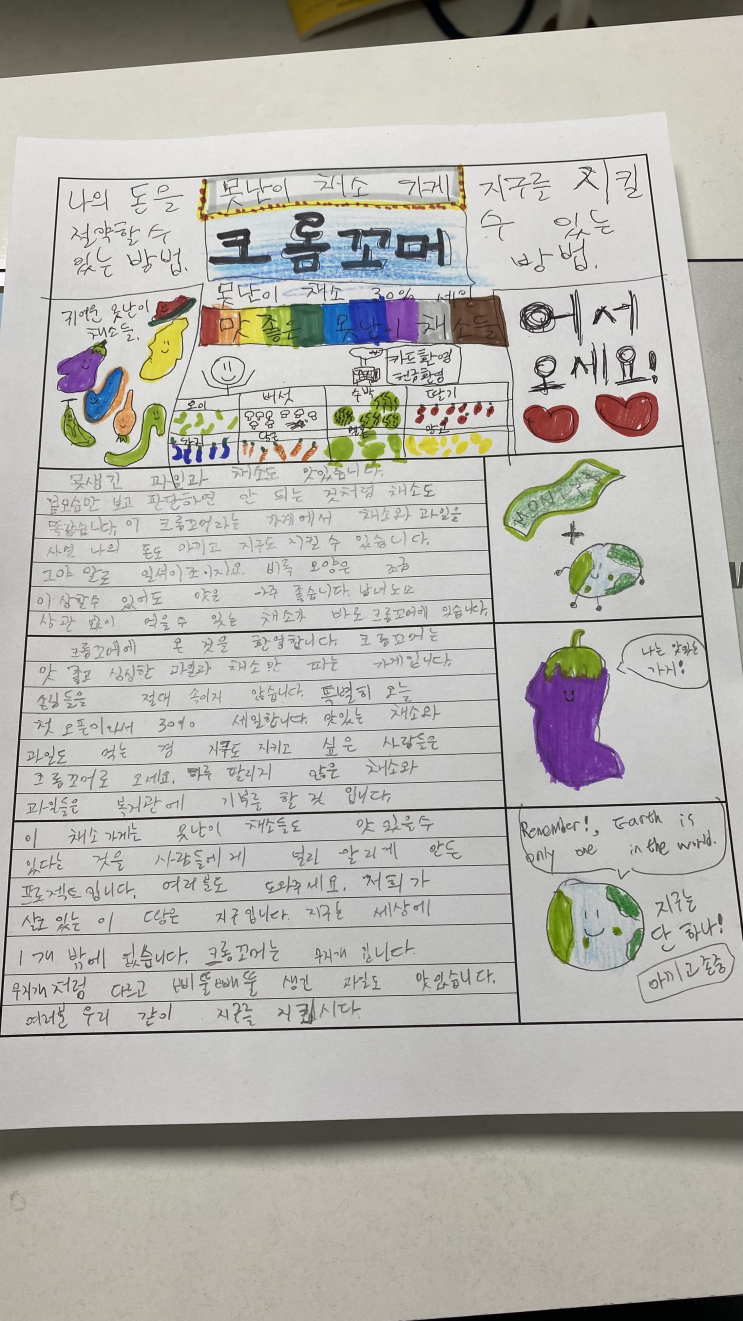 나의 돈을
절약할 수
있는 방법.
못난이 채소 가게
크롬꼬머
지구를 지킬
수 있는
방법.
귀여운 못난이
채소들.
못난이 채소 30% 세일
맛 좋은 못난이 채소들
카드환영
현금환영
오이
버섯
수박
딸기
가지
당근
멜론
망고
어서
오세요!
못생긴 과일과 채소도 맛있습니다.
겉모습만 보고 판단하면 안 되는 것처럼 채소도
똑같습니다. 이 크롬꼬머라는 가게에서 채소와 과일을
사면 나의 돈도 아끼고 지구도 지킬 수 있습니다.
그야 말로 일석이조이지요. 비록 모양은 조금
이상할수 있어도 맛은 아주 좋습니다. 남녀노소
상관 없이 먹을 수 있는 채소가 바로 크롬꼬머에 있습니다.
MONEY
+
크롬꼬머에 온 것을 환영합니다. 크롬꼬머는
맛 좋고 싱싱한 과일과 채소만 파는 가게입니다.
손님들을 절대 속이지 않습니다. 특별히 오늘
첫 오픈이라서 30% 세일합니다. 맛있는 채소와
과일도 먹는 겸 지구도 지키고 싶은 사람들은
크롬꼬머로 오세요. 하루 팔리지 않은 채소와
과일들은 복지관에 기부를 할 것 입니다.
나는 맛있는
가지!
이 채소가게는 못난이 채소들도 맛있을수
있다는 것을 사람들에게 널리 알리게 만든
프로젝트입니다. 여러분도 도와주세요. 저희가
살고 있는 이 땅은 지구입니다. 지구는 세상에
1개 밖에 없습니다. 크롬꼬머는 무지개 입니다.
무지개처럼 다르고 삐뚤빼뚤 생긴 과일도 맛있습니다.
여러분 우리 같이 지구를 지킵시다.
Remember!, Earth is
only one in the world.
지구는
단 하나!
아끼고 존중